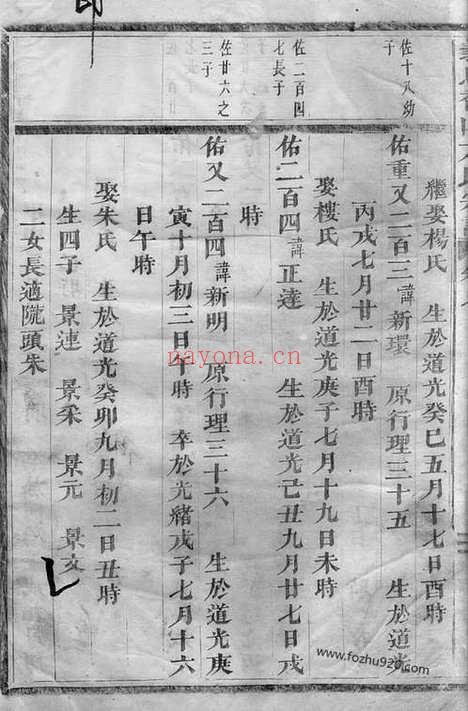 繼娶楊氏　生於道光癸巳五月十七日酉時
佐十八幼子
佑重又二百三諱新環　原行理三十五　生於道光
丙戌七月廿二日酉時
娶樓氏　生於道光庚子七月十九日未時
佐二百四七長子
佑二百四諱正達　生於道光己丑九月廿七日戌
時
佐廿六之三子
佑又二百四諱新明　原行理三十六　生於道光庚
寅十月初三日午時　卒於光緒戊子七月十六
日午時
娶朱氏　生於道光癸卯九月初二日丑時
生四子　景連　景采　景元　景文
二女長適隴頭朱
nayona.cn
www.fozhu920.com